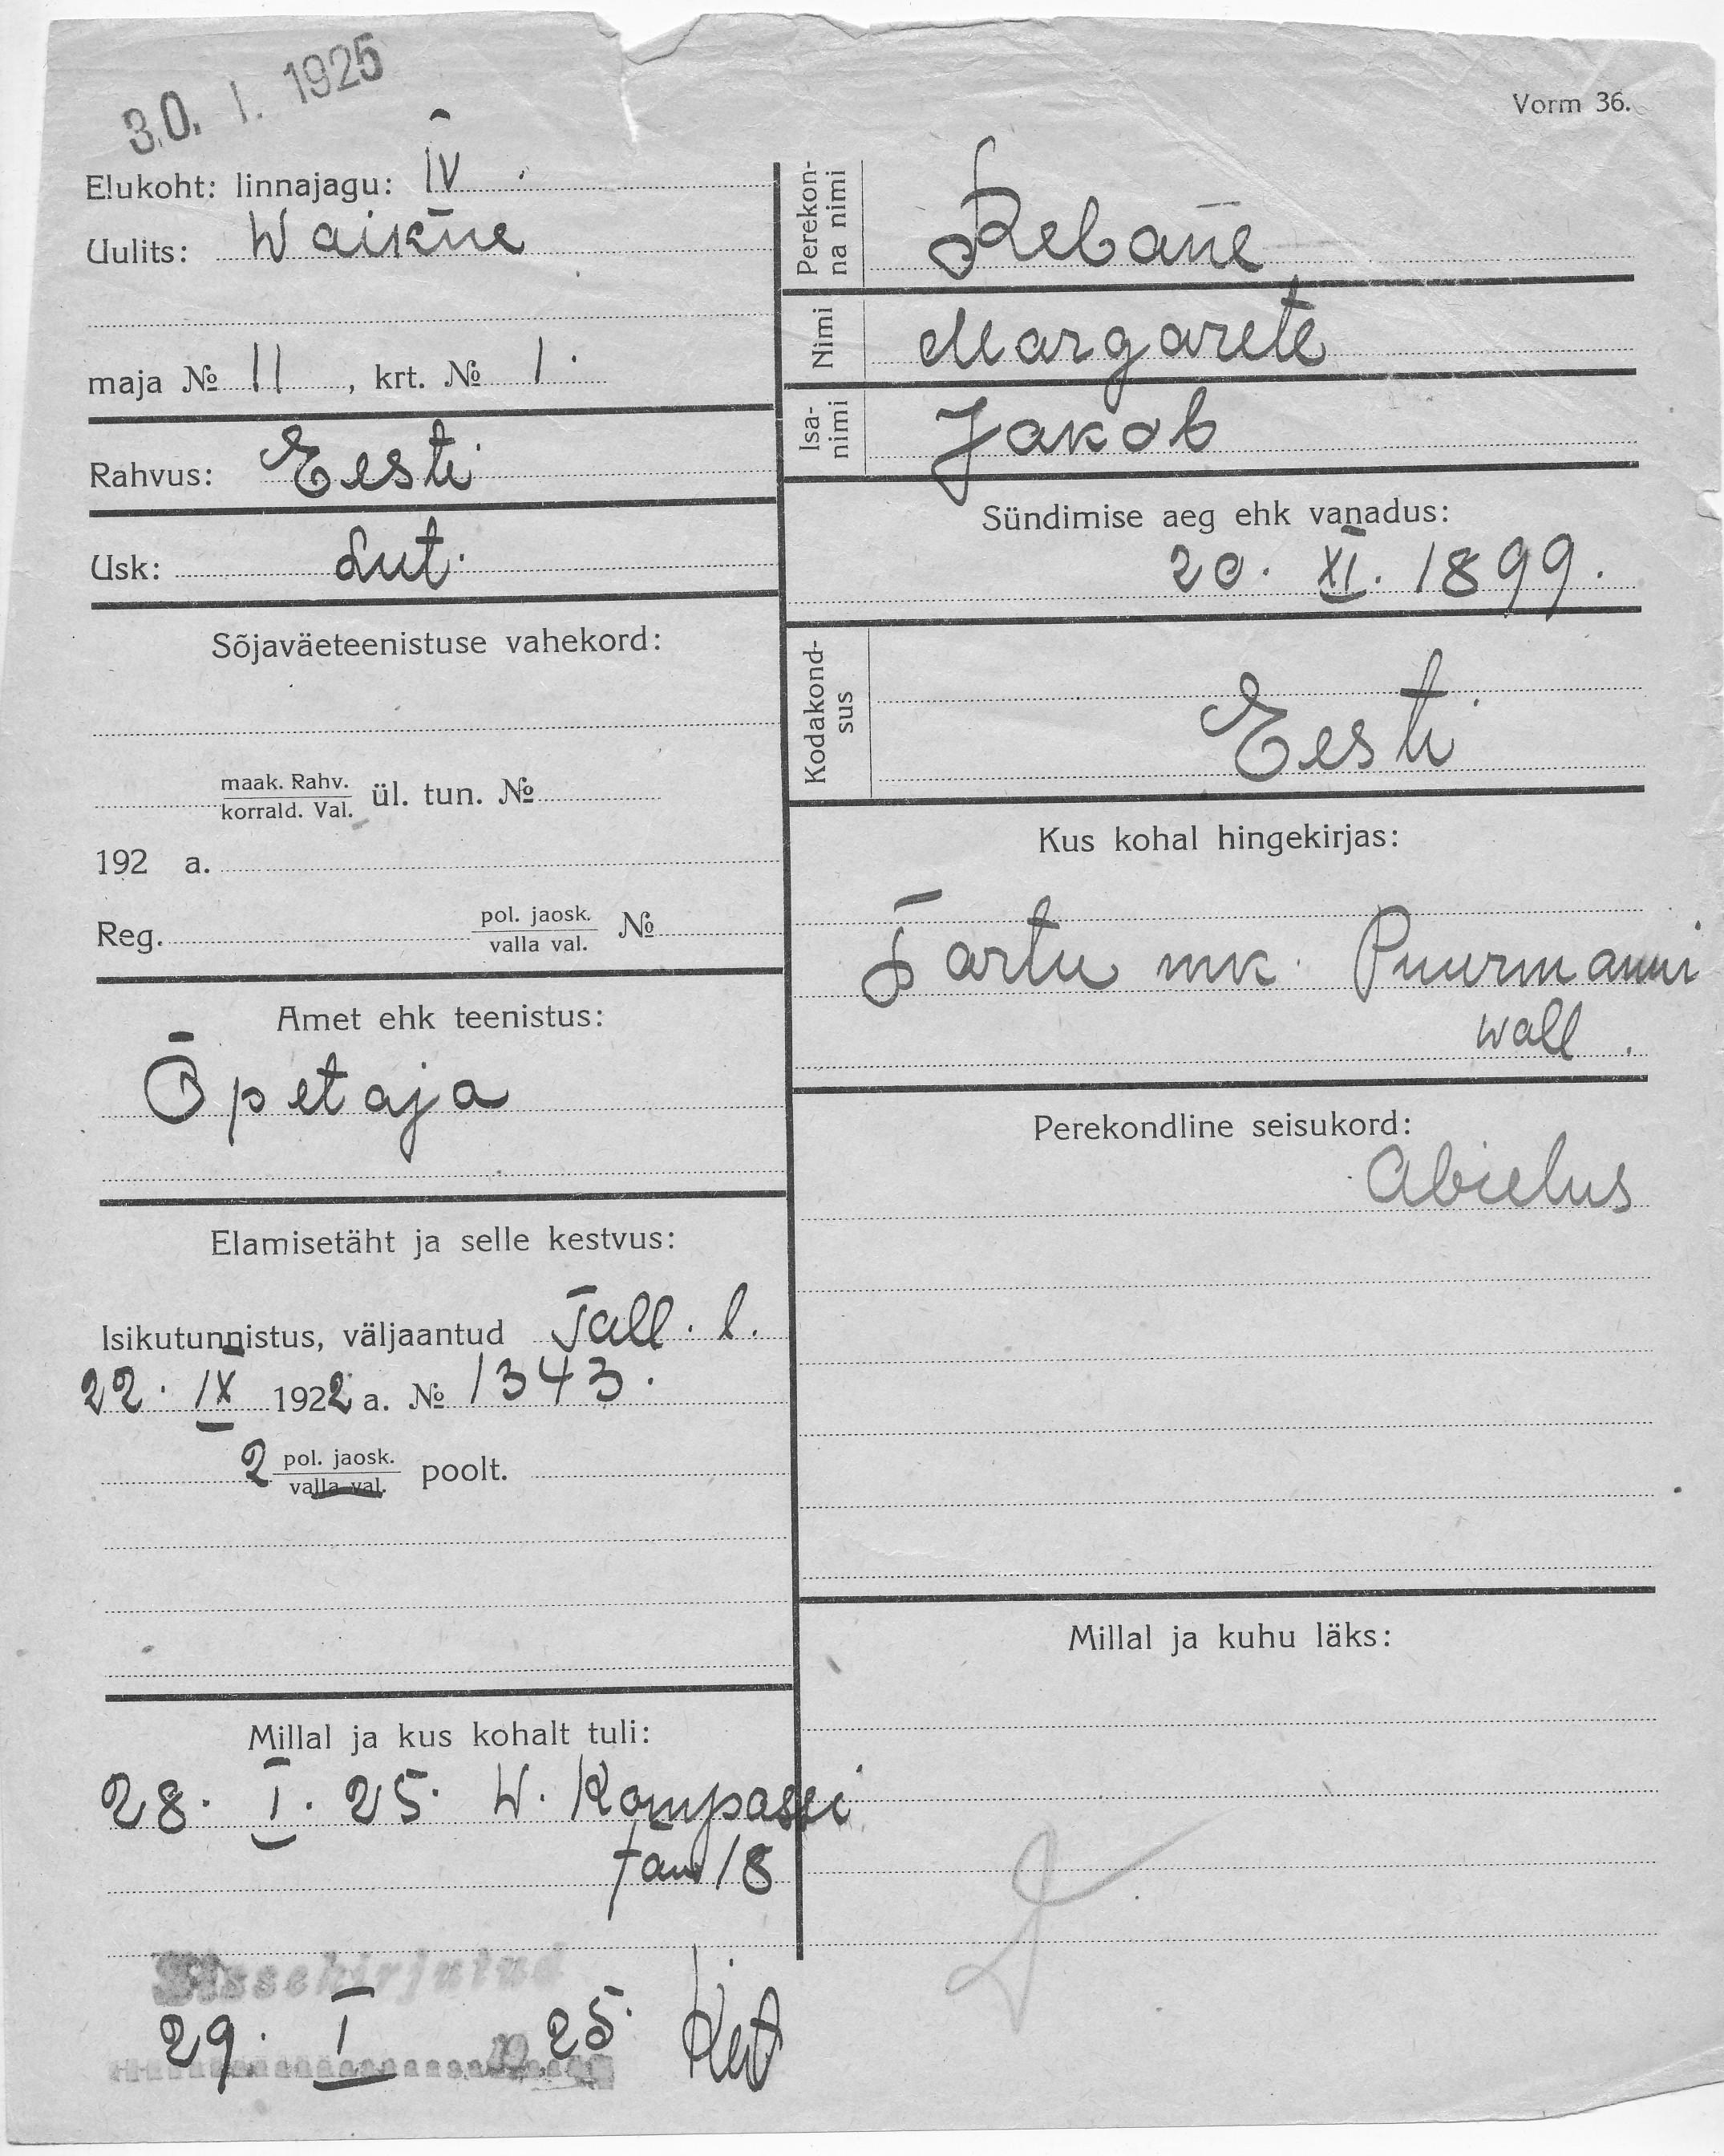 30. I. 1925
Vorm 36.
Elukoht: linnajagu: IV.
Uulits: Waikne
maja № 11, krt. № 1.
Rahvus: Eesti
Usk: Lut.
Sõjaväeteenistuse vahekord:
maak. Rahv.
korrald. Val. ül. tun. №
192 a.
Reg. pol. jaosk.
valla val. №
Amet ehk teenistus:
Õpetaja
Elamisetäht ja selle kestvus:
Isikutunnistus, väljaantud Tall. l.
22. IX 1922 a. № 1343.
2 pol. jaosk.
valla val. poolt.
Millal ja kus kohalt tuli:
28. I. 25. W. Kompassi
tän 18
Sissekirjutud
29. I 1925.
Perekonna nimi Rebane
Nimi Margarete
Isanimi Jakob
Sündimise aeg ehk vanadus:
20. XI. 1899.
Kodakondsus Eesti
Kus kohal hingekirjas:
Tartu mk. Puurmanni
wall.
Perekondline seisukord:
Abielus
Millal ja kuhu läks: